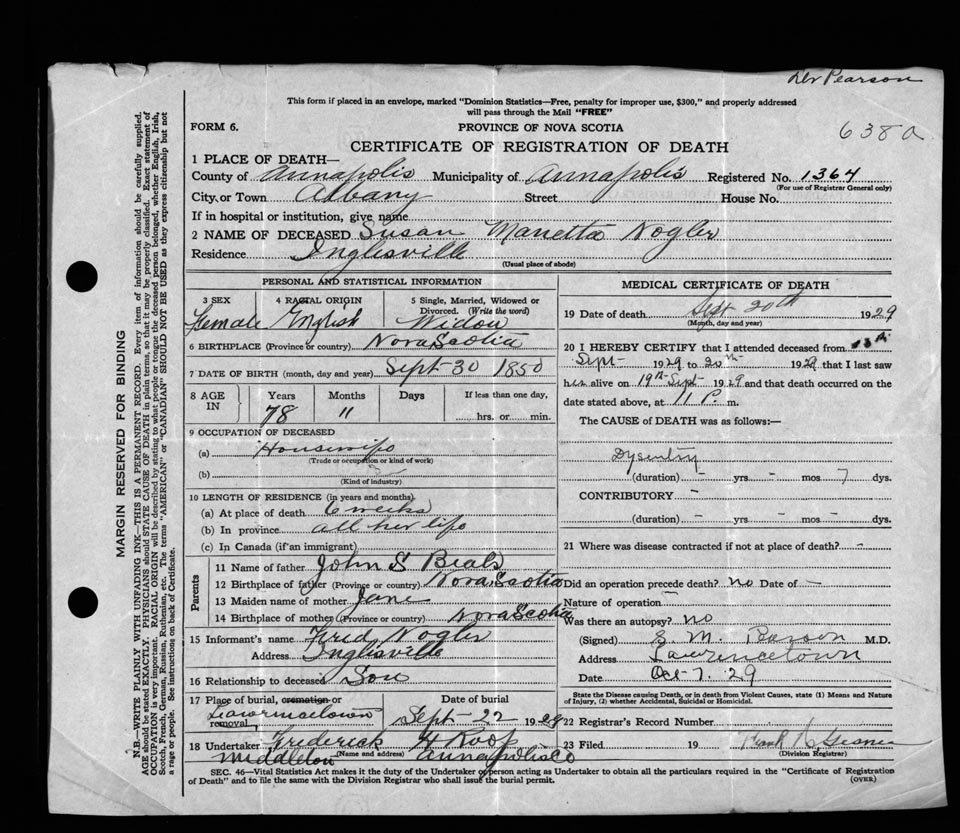 Dr Pearson
This form if placed in an envelope, marked "Dominion Statistics—Free, penalty for improper use, $300," and properly addressed
will pass through the Mail "FREE"
FORM 6.
PROVINCE OF NOVA SCOTIA
638a
CERTIFICATE OF REGISTRATION OF DEATH
1 PLACE OF DEATH—
County of Annapolis Municipality of Annapolis Registered No. 1364
(For use of Registrar General only)
City or Town Albany Street House No.
If in hospital or institution, give name
2 NAME OF DECEASED Susan Manetta Nogler
Residence Inglisville
(Usual place of abode)
PERSONAL AND STATISTICAL INFORMATION
3 SEX 4 RACIAL ORIGIN 5 Single, Married, Widowed or
Divorced. (Write the word)
Female English Widow
6 BIRTHPLACE (Province or country) Nova Scotia
7 DATE OF BIRTH (month, day and year) Sept 30 1850
8 AGE IN Years Months Days If less than one day,
78 11 hrs. or min.
9 OCCUPATION OF DECEASED
(a) Housewife
(Trade or occupation or kind of work)
(b)
(Kind of industry)
10 LENGTH OF RESIDENCE (in years and months)
(a) At place of death 6 weeks
(b) In province all her life
(c) In Canada (if an immigrant)
Parents
11 Name of father John S Beals
12 Birthplace of father (Province or country) Nova Scotia
13 Maiden name of mother Jane
14 Birthplace of mother (Province or country) Nova Scotia
15 Informant's name Fred Nogler
Address Inglisville
16 Relationship to deceased Son
17 Place of burial, cremation or Date of burial
Lawrencetown Sept 22 1929
removal
18 Undertaker Frederick H Roop
Middleton (Name and address) Annapolis Co
MEDICAL CERTIFICATE OF DEATH
19 Date of death Sept 20th 1929
(Month, day and year)
20 I HEREBY CERTIFY that I attended deceased from 13th
Sept 1929 to 20th 1929 that I last saw
her alive on 19th Sept 1929 and that death occurred on
date stated above, at 11 P. m.
The CAUSE of DEATH was as follows:—
Dysentry
(duration) - yrs - mos 7 dys.
CONTRIBUTORY -
(duration) - yrs - mos - dys.
21 Where was disease contracted if not at place of death? -
Did an operation precede death? no Date of -
Nature of operation -
Was there an autopsy? no
(Signed) M. M.D.
Address Lawrencetown
Date Oct 7. 29
State the Disease causing Death, or in death from Violent Causes, state (1) Means and Nature
of Injury, (2) whether Accidental, Suicidal or Homicidal.
22 Registrar's Record Number
23 Filed 19 Frank Gesner
(Division Registrar)
SEC. 46—Vital Statistics Act makes it the duty of the Undertaker or person acting as Undertaker to obtain all the particulars required in the "Certificate of Registration
of Death" and to file the same with the Division Registrar who shall issue the burial permit. (OVER)
MARGIN RESERVED FOR BINDING
N.B.—WRITE PLAINLY WITH UNFADING INK—THIS IS A PERMANENT RECORD. Every item of information should be carefully supplied.
AGE should be stated EXACTLY. PHYSICIANS should STATE CAUSE OF DEATH in plain terms, so that it may be properly classified. Exact statement of
OCCUPATION is very important. RACIAL ORIGIN will be described by stating to what people or tongue the deceased person belonged, whether English, Irish,
Scotch, French, German, Russian, Ruthenian, etc. The terms "AMERICAN" or "CANADIAN" SHOULD NOT BE USED as they express citizenship but not
a rage or people. See instructions on back of Certificate.